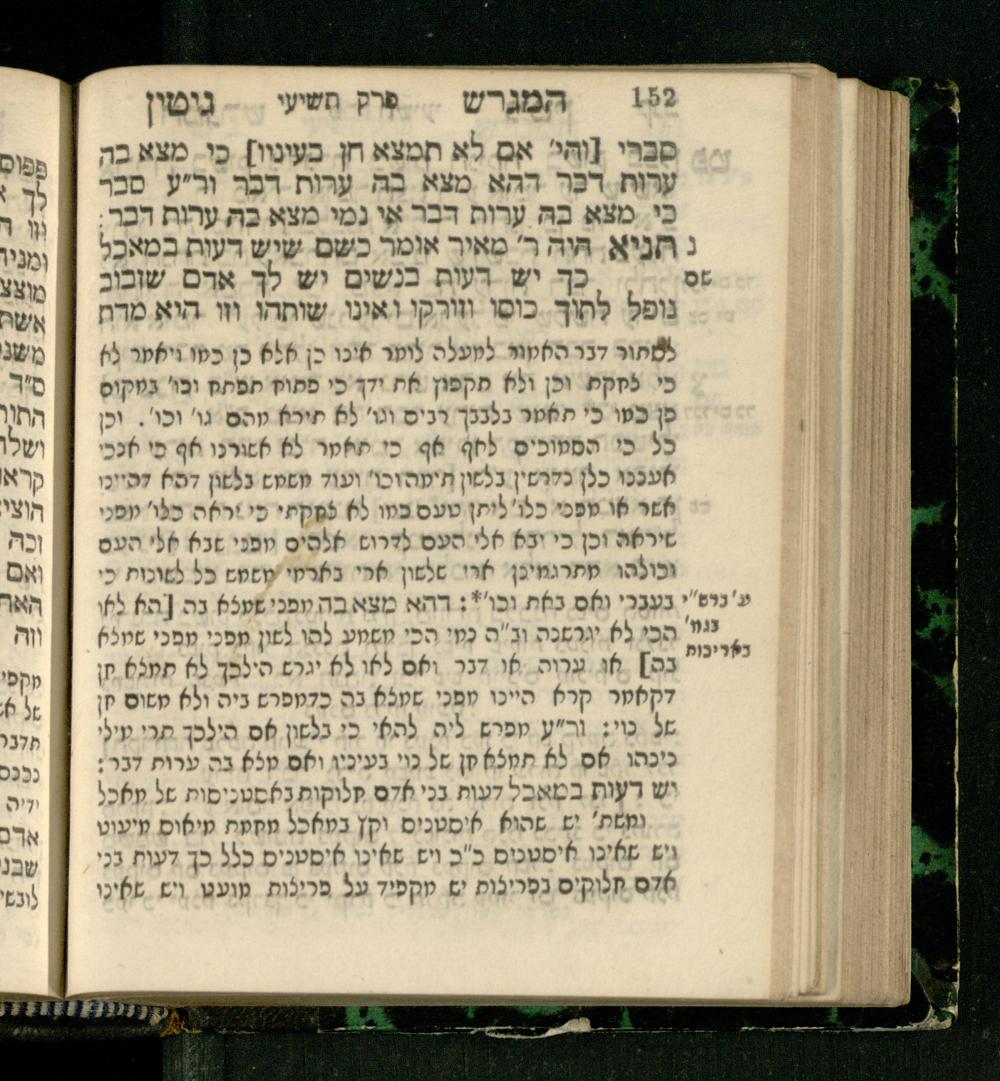 152 המגרש פרק תשיעי גיטין
סברי [והי׳ אם לא תמצא חן בעיניו] כי מצא בה
ערות דבר דהא מצא בה ערות דבר ור״ע סבר
כי מצא בה ערות דבר אי נמי מצא בה ערות דבר :
נ תניא היה ר׳ מאיר אומר כשם שיש דעות במאכל
שם כך יש דעות בנשים יש לך אדם שזבוב
נופל לתוך כוסו וזורקו ואינו שותהו וזו היא מדת
לסתור דבר האמור למעלה לומר אינו כן אלא כן כמו ויאמר לא
כי צחקת וכן ולא תקפוץ את ידך כי פתוח תפתח וכו׳ במקום
כן כמו כי תאמר בלבבך רבים וגו׳ לא תירא מהם גו׳ וכו׳ . וכן
כל כי הסמוכים לאף אף כי תאמר לא אשורנו אף כי אנכי
אעננו כלן נדרשין בלשון תימה וכו׳ ועוד משמש בלשון דהא דהיינו
אשר או מפני כלו׳ ליתן טעם כמו לא צחקתי כי יראה כלו׳ מפני
שיראה וכן כי יבא אלי העם לדרוש אלהים מפני שבא אלי העם
וכולהו מתרגמינן ארי שלשון ארי בארמי משמש כל לשונות כי
ע׳ ברש״י בעברי ואם באת וכו׳* : דהא מצא בה מפני שמצא בה [הא לאו
בגמ׳ הכי לא יגרשנה וב״ה נמי הכי משמע להו לשון מפני מפני שמצא
באריכות בה] או ערוה או דבר ואם לאו לא יגרש הילכך לא תמצא חן
דקאמר קרא היינו מפני שמצא בה כדמפרש ביה ולא משום חן
של נוי : ור״ע מפרש ליה להאי כי בלשון אם הילכך תרי מילי
נינהו אם לא תמצא חן של נוי בעיניו ואם מצא בה ערות דבר :
יש דעות במאכל דעות בני אדם חלוקות באסטניסות של מאכל
ומשת׳ יש שהוא איסטניס וקץ במאכל מחמת מיאוס מיעוט
ויש שאינו איסטניס כ״כ ויש שאינו איסטניס כלל כך דעות בני
אדם חלוקים בפריצות יש מקפיד על פריצות מועט ויש שאינו